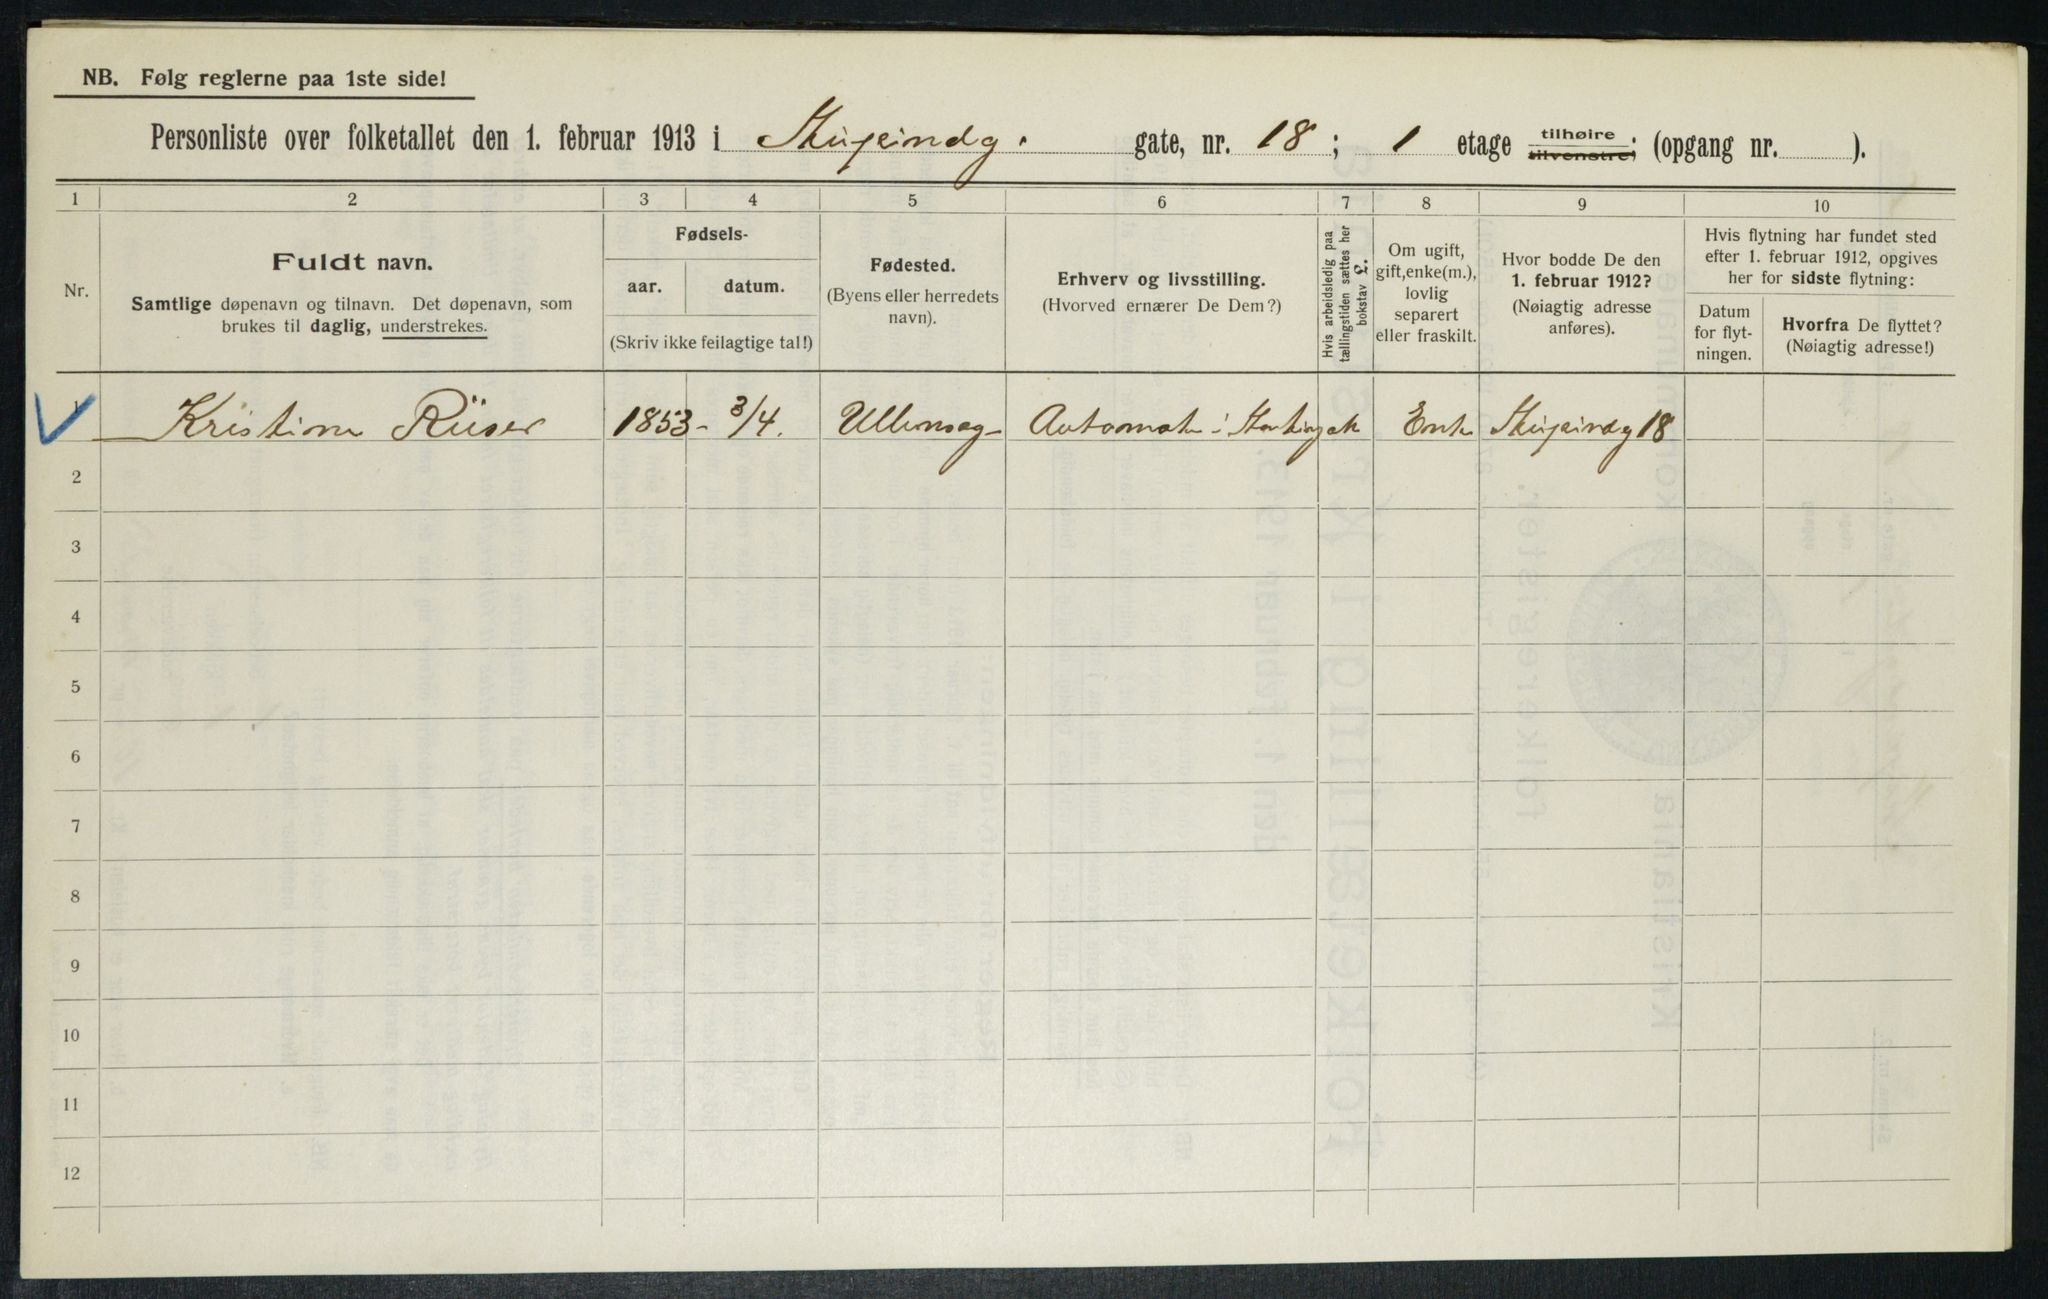 NB. Følg reglerne paa 1ste side!
Personliste over folketallet den 1. februar 1913 i gate, nr. 18; 1 etage tilhøire tilvenstre; (opgang nr. ).
1 2 3 4 5 6 7 8 9 10
Nr.
Fuldt navn.
Samtlige døpenavn og tilnavn. Det døpenavn, som
brukes til daglig, understrekes.
Fødsels-
aar. datum.
(Skriv ikke feilagtige tal!)
Fødested.
(Byens eller herredets
navn).
Erhverv og livsstilling.
(Hvorved ernærer De Dem?)
Hvis arbeidsledig paa
tællingstiden sættes her
bokstav L.
Om ugift,
gift, enke(m.),
lovlig
separert
eller fraskilt.
Hvor bodde De den
1. februar 1912?
(Nøiagtig adresse
anføres).
Hvis flytning har fundet sted
efter 1. februar 1912, opgives
her for sidste flytning:
Datum
for flyt-
ningen.
Hvorfra De flyttet?
(Nøiagtig adresse!)
1 Kristine 1853 - 3/4. Automat i Enke 18
2
3
4
5
6
7
8
9
10
11
12